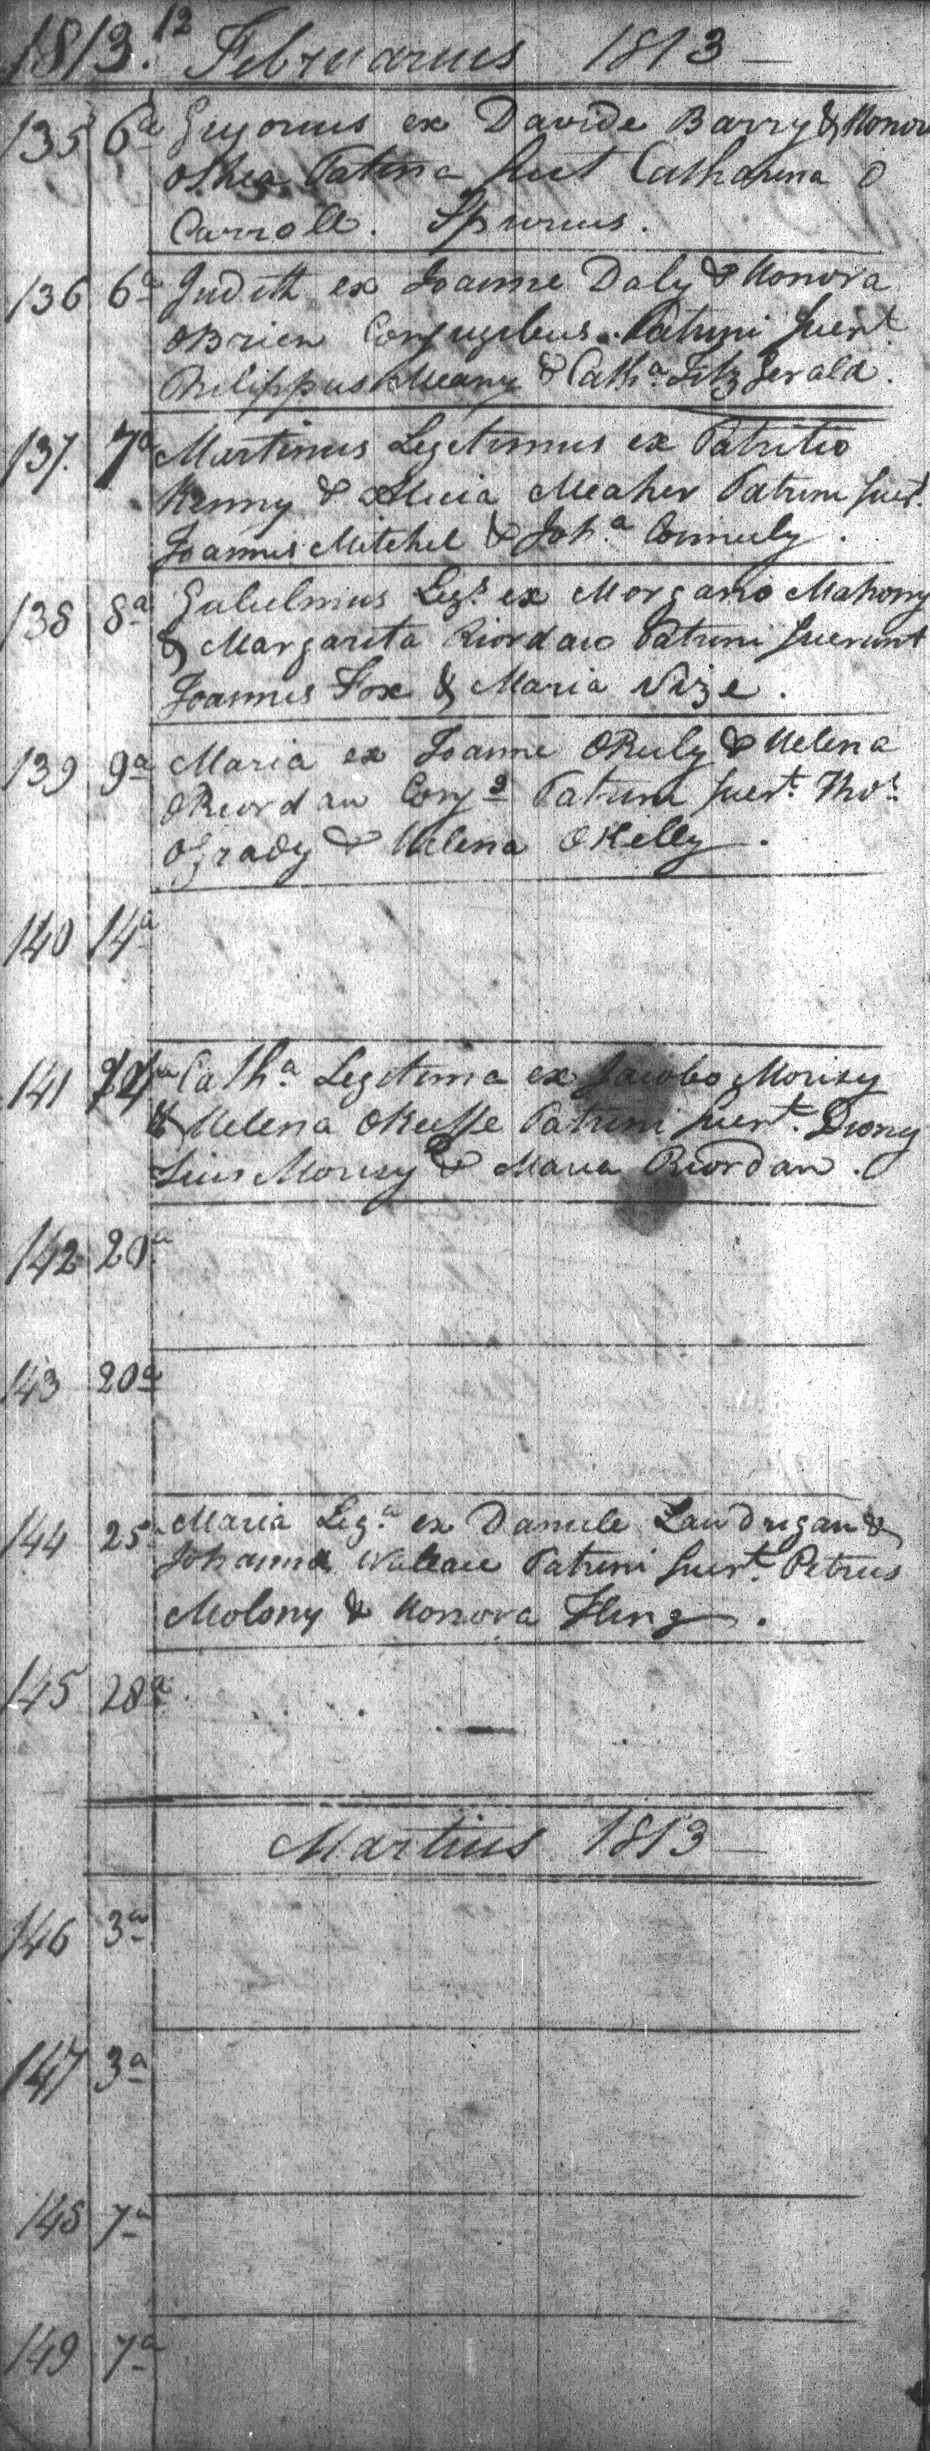 1813. 12 Februarius 1813
135 6a Gregorius ex Davide Barry & Honor
oshea Patrina fuit Catharina O
Carroll. Spurius.
136 6a Judith ex Joanne Daly & Honora
OBrien Conjugibus. Patrini fuert
Philippus Meany & Catha Fitz Gerald.
137. 7a Martinus Legitimus ex Patritio
Kenny & Alicia Meaher Patrini fuert
Joannes Mitchel & Joha Connuly.
138 8a Gulielmus Legs ex Morgano Mahony
& Margarita Riordan Patrini fuerunt
Joannes Fox & Maria Vize.
139 9a Maria ex Joanne OReily & Helena
ORiordan Conjs Patrini fuert. Thos
oGrady & Helena OKelly.
140 14a
141 14a Catha Legitima ex Jacobo Morisy
& Helena OKeeffe Patrini fuert. Diony
sius Morisy & Maria Riordan.
142 20a
143 20a
144 25 Maria Lega ex Daniele Landrigan &
Johanna Wallace Patrini fuert. Petrus
Molony & Honora Fling.
145 28a
Martius 1813
146 3a
147 3a
148 7a
149 7a